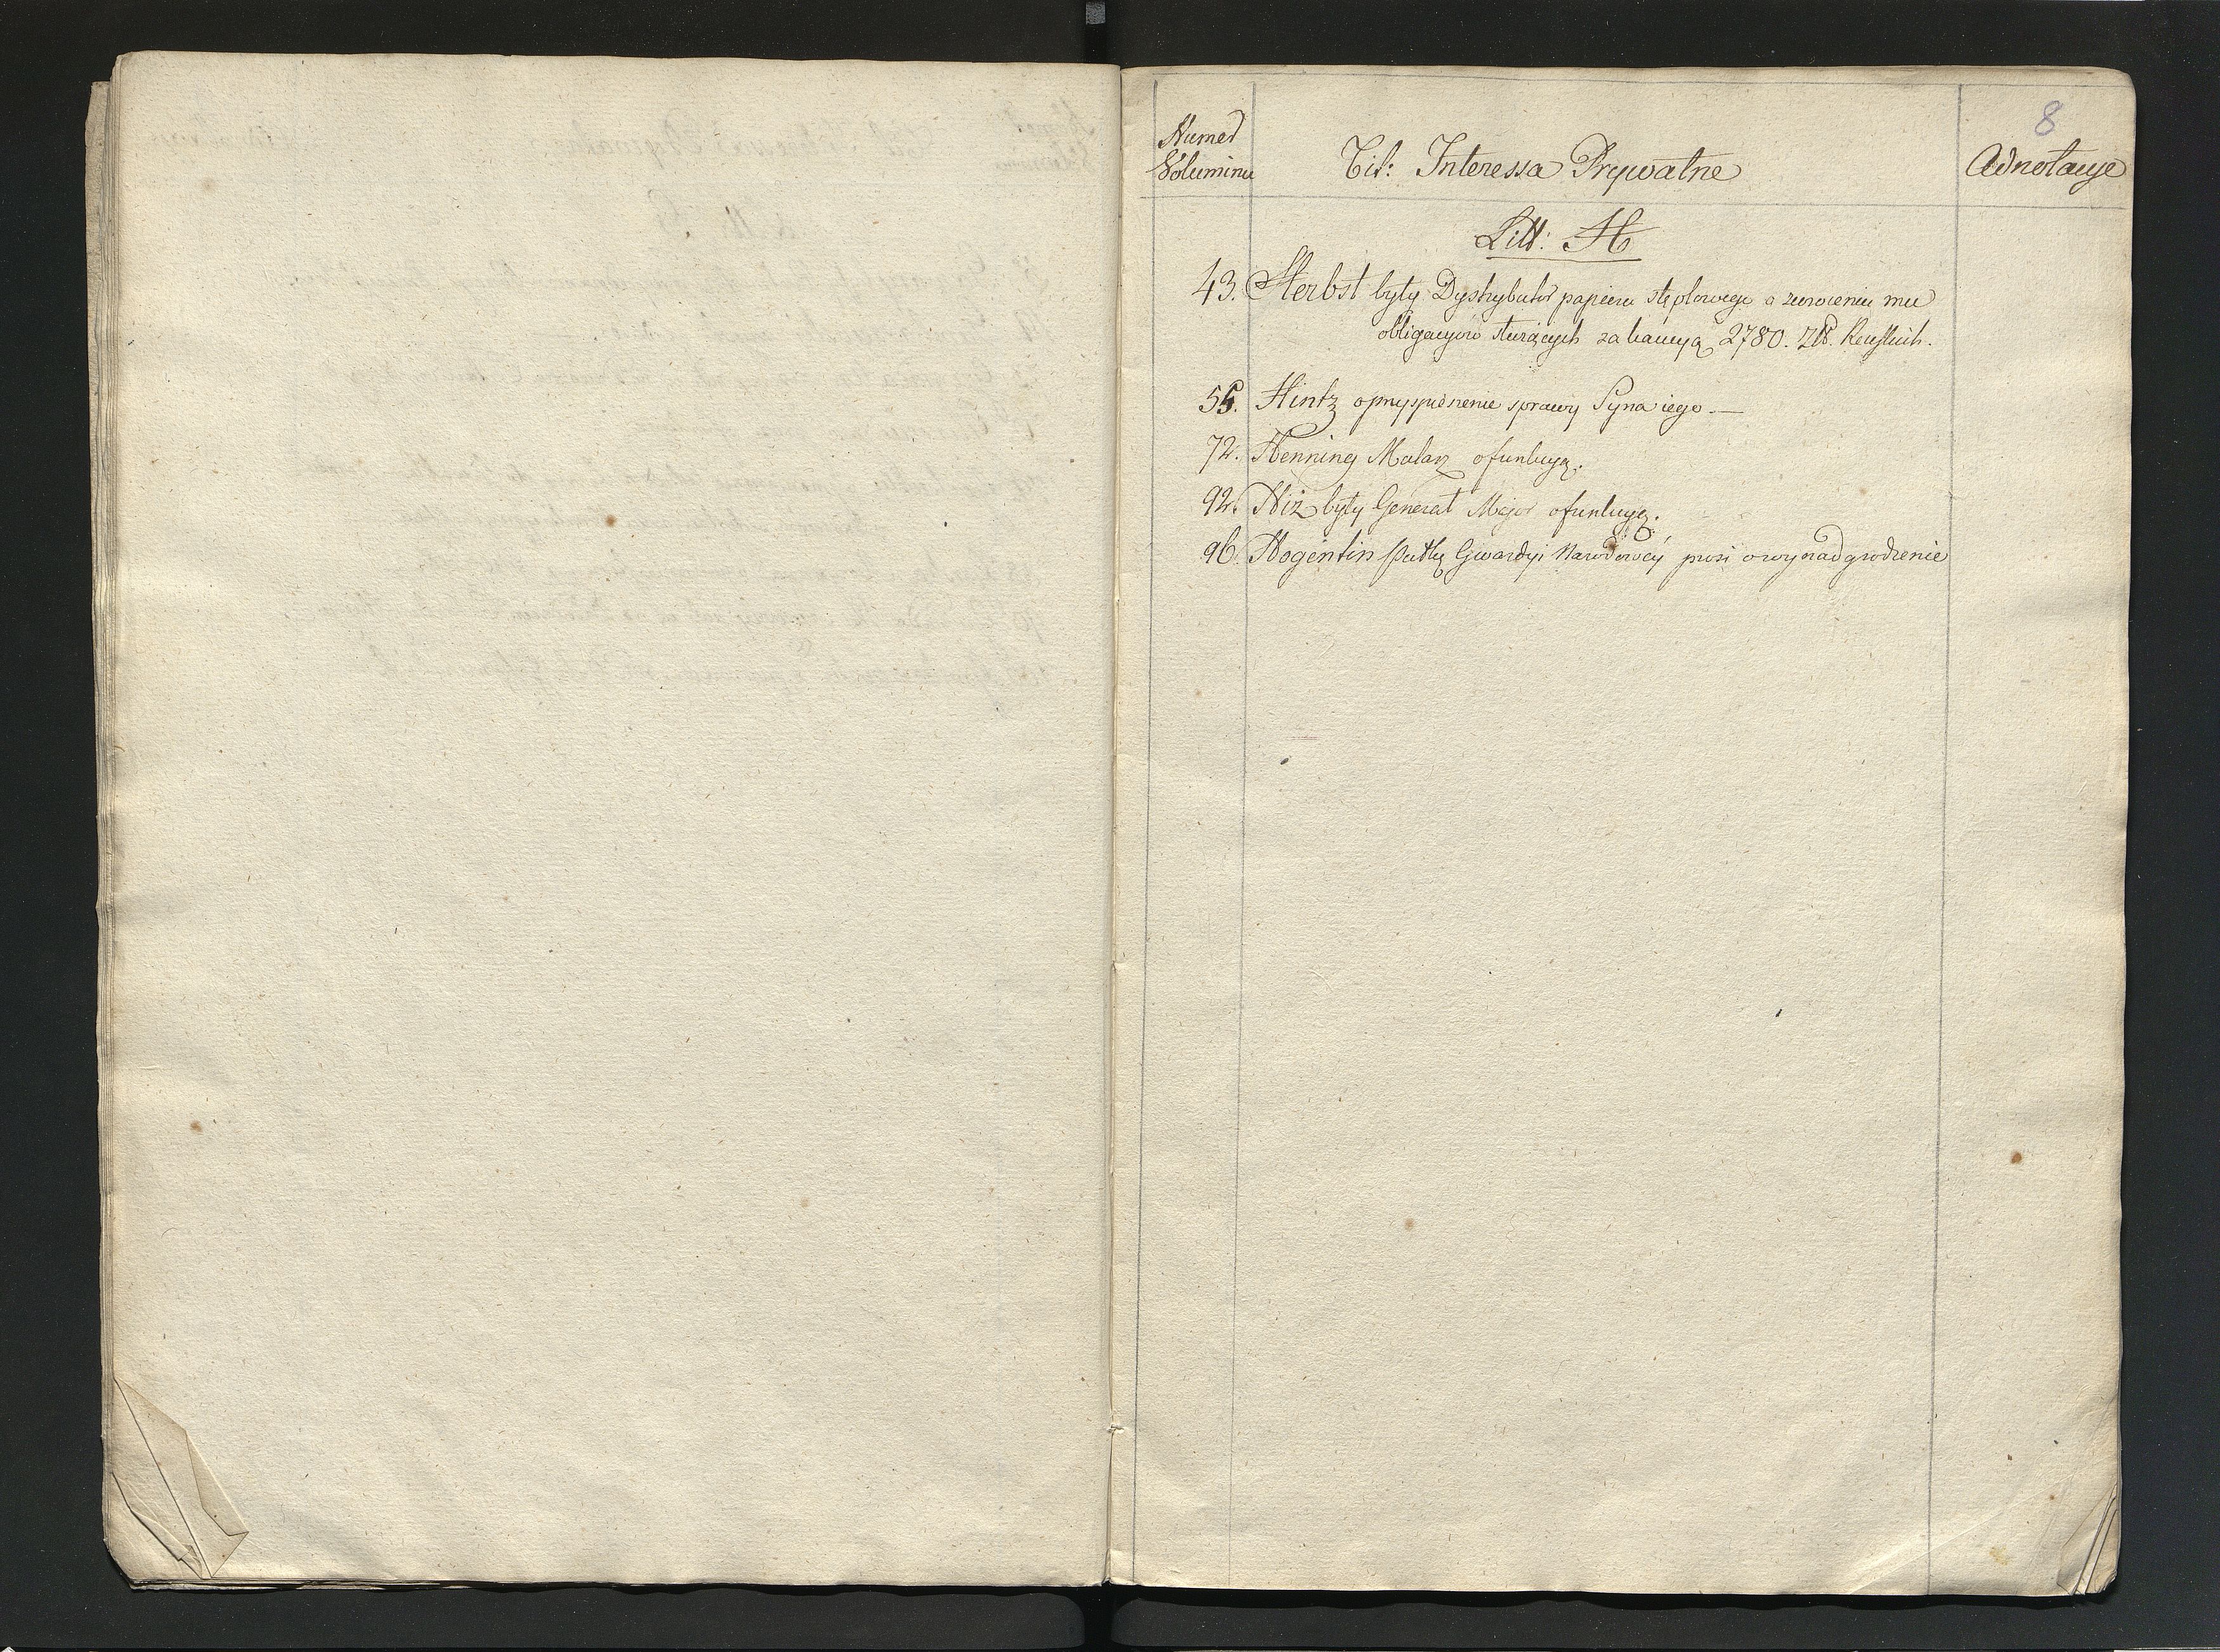 8
Numer
Voluminu
Tit: Interessa Prywatne
Adnotacye
Litt: H
43. Herbst były Dystrybutor papieru stęplowego o zwrocenie mu
obligacyów służących za kaucyą 2780. Złł. Reńskich.
55. Hintz o przyspieszenie sprawy Syna iego.—
72. Henning Malarz o funkcyą.
92. Hiż były Generał Major o funkcyą.
96. Hogentin Gwardyi Narodowéy prosi o wynadgrodzenie